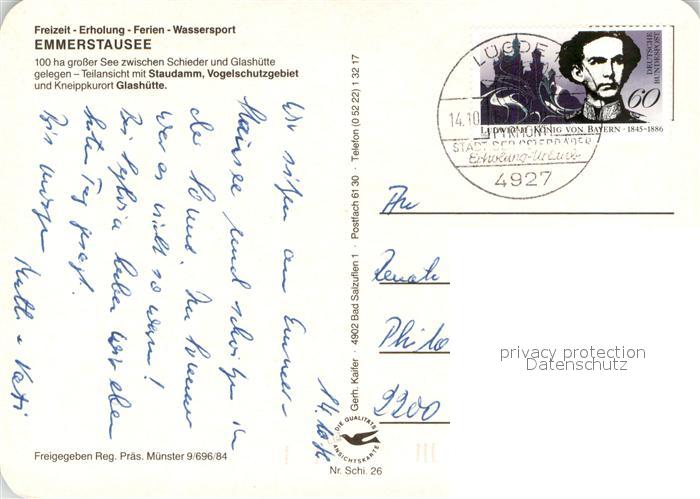 Freizeit - Erholung - Ferien - Wassersport
EMMERSTAUSEE
100 ha großer See zwischen Schieder und Glashütte
gelegen – Teilansicht mit Staudamm, Vogelschutzgebiet
und Kneippkurort Glashütte.
14.10.
Wir sitzen am Emmer-
stausee und schwitzen in
der Sonne. Im Sommer
war es nicht so warm!
Bei Sylvia haben wir eben
guten Tag gesagt.
Bis morgen
Freigegeben Reg. Präs. Münster 9/696/84
Gerh. Kaifer · 4902 Bad Salzuflen 1 · Postfach 61 30 · Telefon (0 52 22) 1 32 17
DIE QUALITÄTS
ANSICHTSKARTE
Nr. Schi. 26
LÜGDE
14.10
STADT DER OSTERRÄDER
Erholung-Urlaub
4927
DEUTSCHE
BUNDESPOST
60
LUDWIG II. KÖNIG VON BAYERN · 1845-1886
An
Renate
2200
privacy protection
Datenschutz